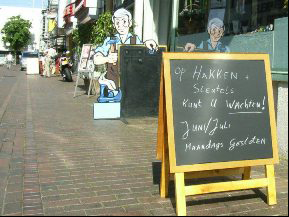 Op HAKKEN +
Sleutels
Kunt U WAchten!
Juni/Juli
MAAndAgs gesloten